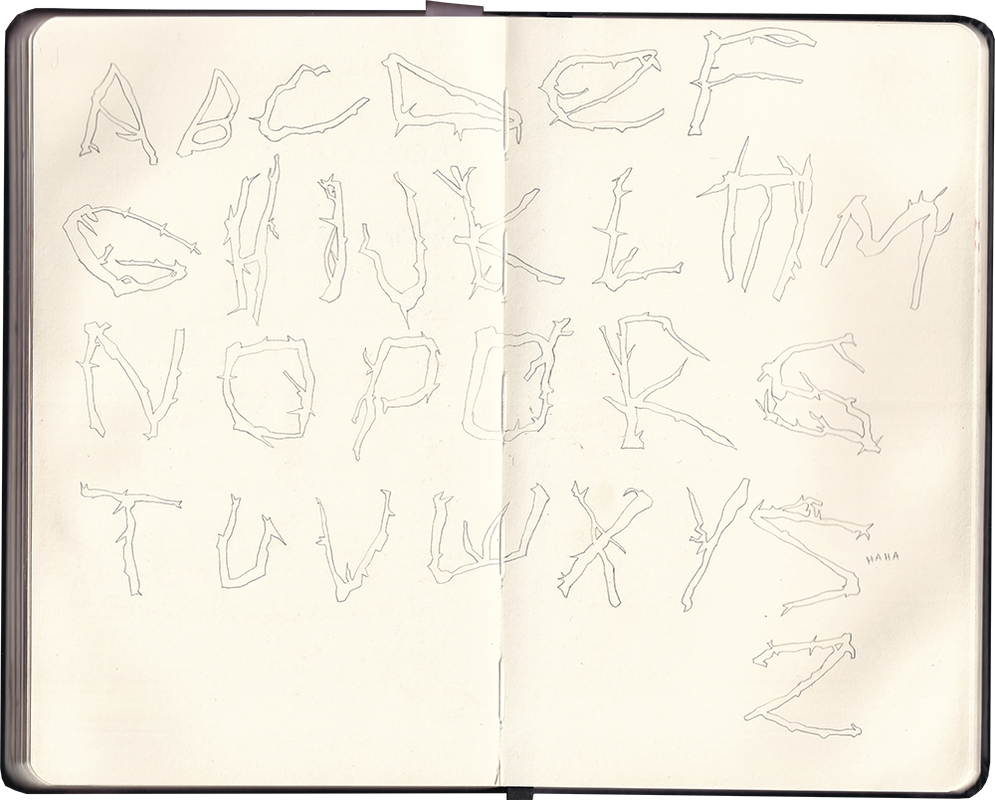 A B C D E F
G H I J K L M M
N O P Q R S
T U V W X Y Z
HAHA
Z